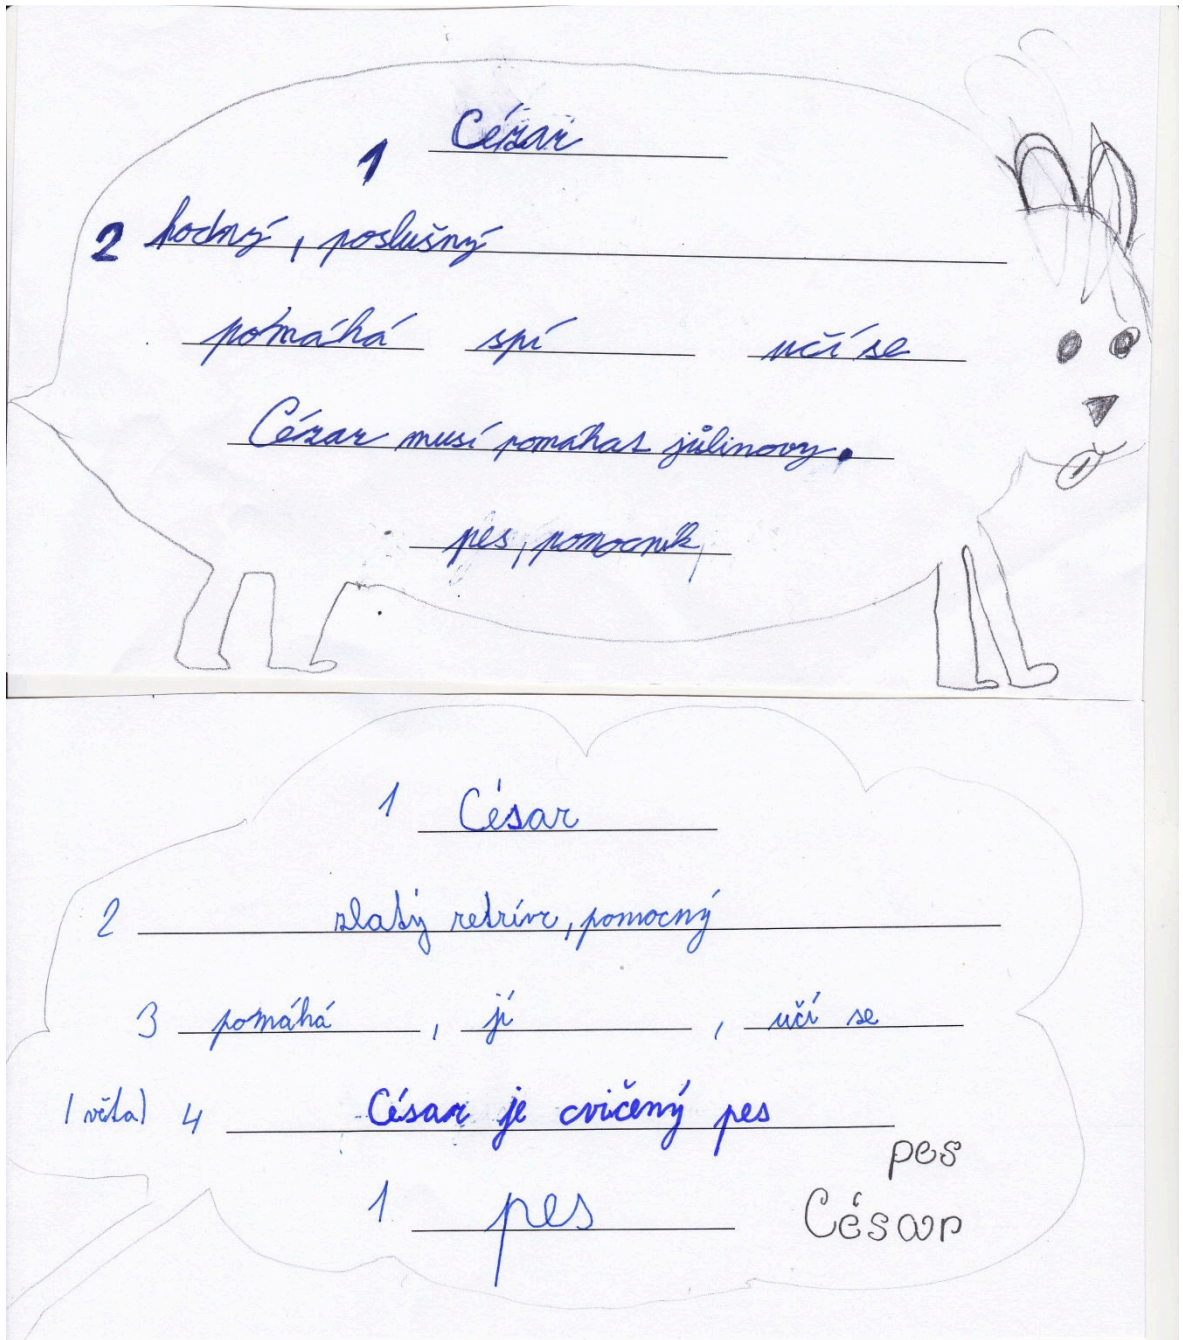 1 Cézar
2 hodný, poslušný
pomáhá spí učí se
Cézar musí pomahat jůlinovy.
pes, pomocník
1 César
2 zlatý retrívr, pomocný
3 pomáhá, jí, učí se
1 věta) 4 César je cvičený pes
pes
1 pes César